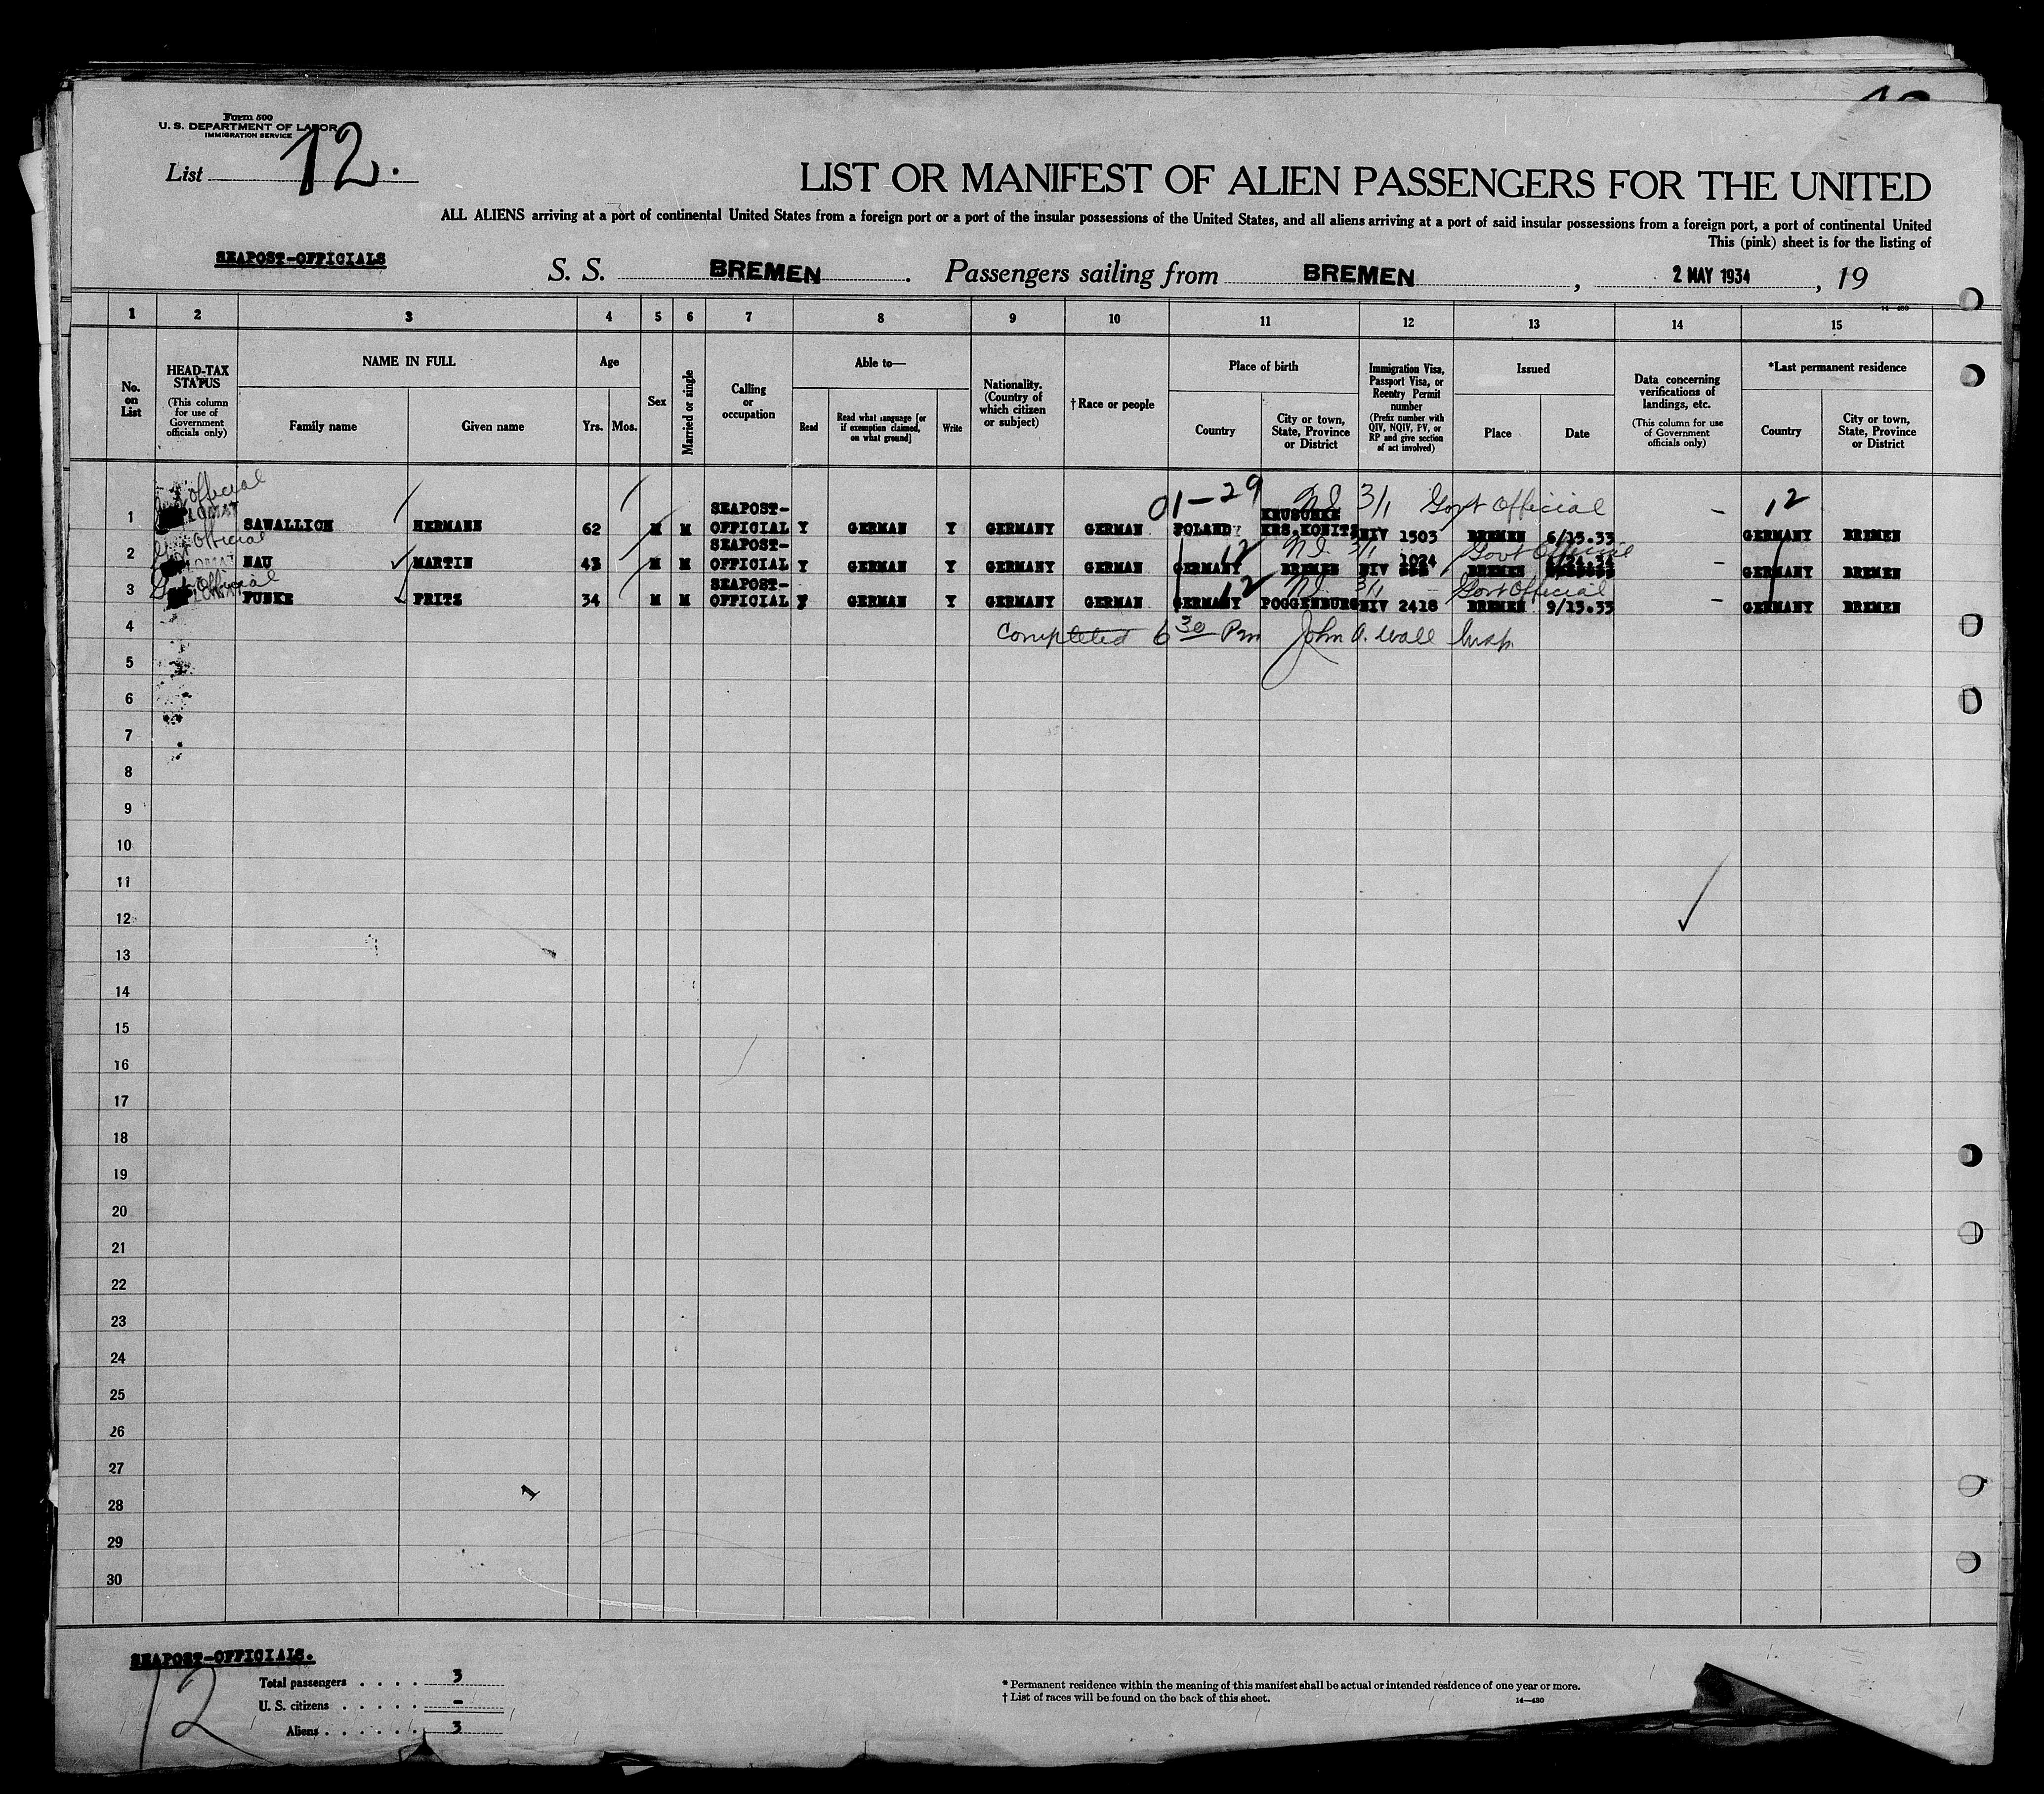 Form 500
U. S. DEPARTMENT OF LABOR
IMMIGRATION SERVICE
List 12.
LIST OR MANIFEST OF ALIEN PASSENGERS FOR THE UNITED
ALL ALIENS arriving at a port of continental United States from a foreign port or a port of the insular possessions of the United States, and all aliens arriving at a port of said insular possessions from a foreign port, a port of continental United
This (pink) sheet is for the listing of
SEAPOST-OFFICIALS
S. S. BREMEN. Passengers sailing from BREMEN, 2 MAY 1934, 19
14—430
1 2 3 4 5 6 7 8 9 10 11 12 13 14 15
No. on List
HEAD-TAX STATUS (This column for use of Government officials only)
NAME IN FULL Family name Given name
Age Yrs. Mos.
Sex
Married or single
Calling or occupation
Able to— Read Read what language [or if exemption claimed, on what ground] Write
Nationality. (Country of which citizen or subject)
†Race or people
Place of birth Country City or town, State, Province or District
Immigration Visa, Passport Visa, or Reentry Permit number (Prefix number with QIV, NQIV, PV, or RP and give section of act involved)
Issued Place Date
Data concerning verifications of landings, etc. (This column for use of Government officials only)
*Last permanent residence Country City or town, State, Province or District
Govt Official 01-29 3/1 Govt Official - 12
1 SAWALLICH HERMANN 62 M M SEAPOST-OFFICIAL Y GERMAN Y GERMANY GERMAN POLAND KRS.KONITZ NIV 1503 BREMEN 6/15.33 GERMANY BREMEN
Govt Official 12 3/1 Govt Official -
2 NAU MARTIN 43 M M SEAPOST-OFFICIAL Y GERMAN Y GERMANY GERMAN GERMANY BREMEN NIV 1024 BREMEN GERMANY BREMEN
Govt Official 12 3/1 Govt Official -
3 FUNKE FRITZ 34 M M SEAPOST-OFFICIAL Y GERMAN Y GERMANY GERMAN GERMANY POGGENBURG NIV 2418 BREMEN 9/13.33 GERMANY BREMEN
4 Completed 6 30 Pm John A. Wall Insp.
5
6
7
8
9
10
11
12
13
14
15
16
17
18
19
20
21
22
23
24
25
26
27
28
29
30
SEAPOST-OFFICIALS.
12
Total passengers . . . . 3
U. S. citizens . . . . . -
Aliens . . . . . . 3
* Permanent residence within the meaning of this manifest shall be actual or intended residence of one year or more.
† List of races will be found on the back of this sheet.
14—430